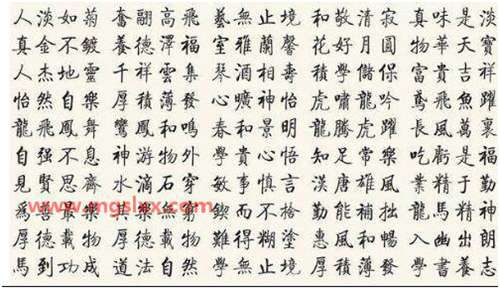 人淡如菊 奮翮高飛 藝無止境 和敬清寂 真味是淡
真金不鍍 養德澤福 室雅蘭馨 花好月圓 物華天寶
人杰地靈 千祥雲集 琴酒相壽 積學儲保 富貴吉祥
怡然自樂 厚積薄發 心曠神怡 虎嘯龍吟 鳶飛魚躍
龍飛鳳舞 鸞鳳和鳴 春和景明 龍騰虎躍 長風萬裏
自强不息 神游物外 學貴心悟 知足常樂 吃虧是福
見賢思齊 水滴石穿 敏事慎言 漢唐雄風 業精于勤
www.mgslxx.com
爲善最樂 鍥而不 勤能補拙 龍馬精神
厚德載物 難得糊塗 惠風和暢
馬到功成 道法自然 學無止境 厚積薄發 學書養志